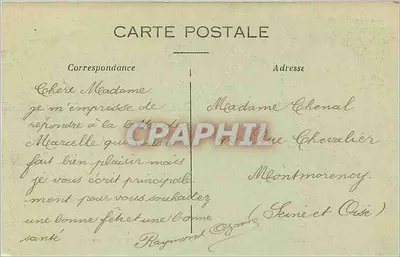 CARTE POSTALE
Correspondance
Adresse
Chère Madame
je m'empresse de
répondre à la
Marcelle qui
fait bien plaisir mais
je vous écrit principale
ment pour vous souhaitez
une bonne fête et une bonne
santé
Raymond
Madame Chenal
Rue Chevalier
Montmorency
(Seine et Oise)
CPAPHIL